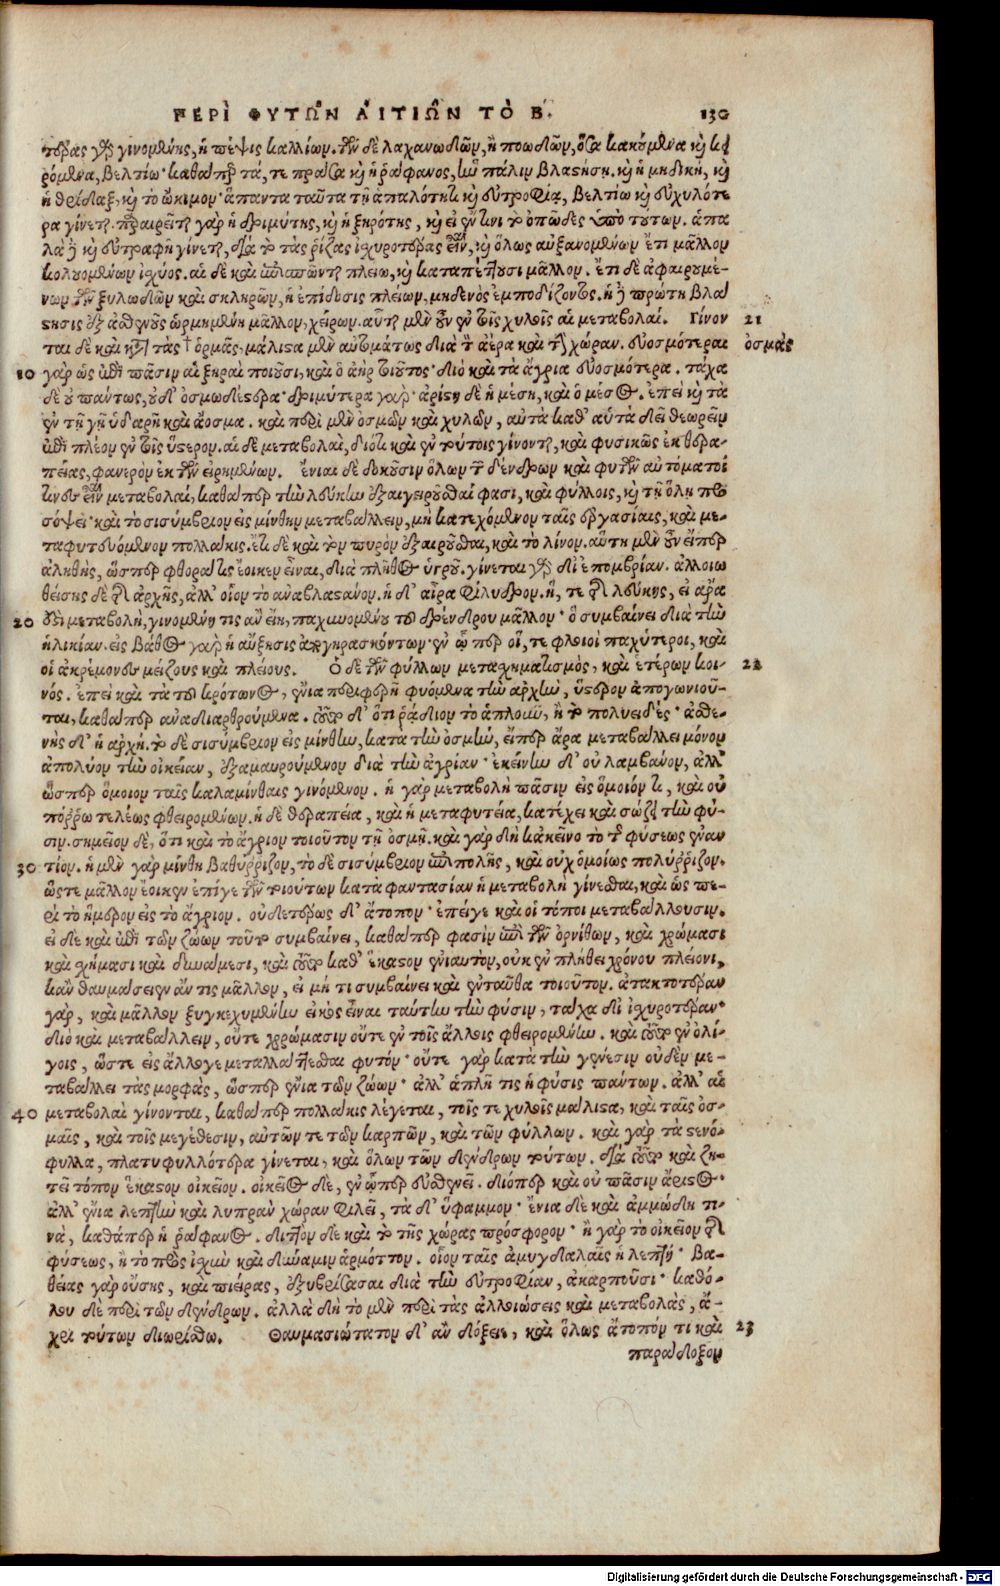 ΠΕΡῚ ΦΥΤΩ͂Ν ΑἸΤΙΩ͂Ν ΤῸ Β. 130
τέρας γὸ γινομένης, ἡ πέψις καλλίων. τῶν δὲ λαχανωδῶν, ἢ ποωδῶν, ὅσα κακούμενα καὶ κει
ρόμενα, βελτίω· καθάπερ τά, τε πράσα καὶ ἡ ῥάφανος, ἣν πάλιν βλαστήσῃ. καὶ ἡ μηδικὴ, καὶ
ἡ θρίδαξ, καὶ τὸ ὤκιμον· ἅπαντα ταῦτα τῇ ἁπαλότητι καὶ εὐτροφίᾳ, βελτίω καὶ εὐχυλότε
ρα γίνεται. παραιρεῖται γὰρ ἡ δριμύτης, καὶ ἡ ξηρότης, καὶ εἰ ἔν τινι τὸ ὀπῶδες ὑπὸ τούτων. ἁπα
λὰ δὲ καὶ εὐτραφῆ γίνεται, διὰ τὸ τὰς ῥίζας ἰσχυροτέρας εἶναι, καὶ ὅλως αὐξανομένων ἔτι μᾶλλον
κολουομένων ἰσχύος. αἱ δὲ καὶ ἐπισπῶνται πλείω, καὶ καταπέττουσι μᾶλλον. ἔτι δὲ ἀφαιρουμέ-
νων τῶν ξυλωδῶν καὶ σκληρῶν, ἡ ἐπίδοσις πλείων, μηδενὸς ἐμποδίζοντος. ἡ δὲ πρώτη βλά
στησις ἐξ ἀσθενοῦς ὡρμημένη μᾶλλον, χείρων. αὗται μὲν οὖν ἐν τοῖς χυλοῖς αἱ μεταβολαί. Γίνον 21
ται δὲ καὶ κατὰ τὰς † ὁρμὰς, μάλιστα μὲν αὐτομάτως διὰ τὸν ἀέρα καὶ τὴν χώραν. εὐοσμότεραι ὀσμὰς
10 γὰρ ὡς ἐπὶ πᾶσιν αἱ ξηραὶ ποιοῦσι, καὶ ὁ ἀὴρ τοιοῦτος· διὸ καὶ τὰ ἄγρια εὐοσμότερα. τάχα
δὲ οὐ πάντως, οὐδ' ὀσμωδέστερα· δριμύτερα γάρ· ἀρίστη δὲ ἡ μέση, καὶ ὁ μέσος. ἐπεὶ καὶ τὰ
ἐν τῇ γῇ ὑδαρῆ καὶ ἄοσμα. καὶ περὶ μὲν ὀσμῶν καὶ χυλῶν, αὐτὰ καθ' αὑτὰ δεῖ θεωρεῖν
ἐπὶ πλέον ἐν τοῖς ὕστερον. αἱ δὲ μεταβολαὶ, διότι καὶ ἐν τούτοις γίνονται, καὶ φυσικῶς ἐκ θερα-
πείας, φανερὸν ἐκ τῶν εἰρημένων. ἔνιαι δὲ δοκοῦσιν ὅλων τῶν δένδρων καὶ φυτῶν αὐτόματοί
τινες εἶναι μεταβολαὶ, καθάπερ τὴν λεύκην ἐξαιγειροῦσθαί φασι, καὶ φύλλοις, καὶ τῇ ὅλῃ προ
σόψει· καὶ τὸ σισύμβριον εἰς μίνθην μεταβάλλειν, μὴ κατεχόμενον ταῖς ἐργασίαις, καὶ με-
ταφυτευόμενον πολλάκις. ἔτι δὲ καὶ τὸν πυρὸν ἐξαιροῦσθαι, καὶ τὸ λίνον. αὕτη μὲν οὖν εἴπερ
ἀληθὴς, ὥσπερ φθορά τις ἔοικεν εἶναι, διὰ πλῆθος ὑγροῦ. γίνεται γὸ δι' ἐπομβρίαν. ἀλλοιω
θείσης δὲ τῆς ἀρχῆς, ἀλλ' οἷον τὸ ἀναβλαστάνον. ἡ δ' αἶρα φίλυδρον. ἥ, τε τῆς λεύκης, εἰ ἄρα
20 ἐστὶ μεταβολὴ, γινομένη τις ἂν εἴη, παχυνομένου τοῦ δένδρου μᾶλλον· ὃ συμβαίνει διὰ τὴν
ἡλικίαν. εἰς βάθος γὰρ ἡ αὔξησις ἀπογηρασκόντων· ἐν ᾧ περ οἵ, τε φλοιοὶ παχύτεροι, καὶ
οἱ ἀκρέμονες μείζους καὶ πλείους. Ὁ δὲ τῶν φύλλων μετασχηματισμὸς, καὶ ἑτέρων κοι- 22
νός. ἐπεὶ καὶ τὰ τοῦ κρότωνος, ἔνια περιφερῆ φυόμενα τὴν ἀρχὴν, ὕστερον ἀπογωνιοῦ-
ται, καθάπερ ἀναδιαρθρούμενα. τοῦτο δ' ὅτι ῥάδιον τὸ ἁπλοῦν, ἢ τὸ πολυειδές· ἀσθε-
νὴς δ' ἡ ἀρχή. τὸ δὲ σισύμβριον εἰς μίνθην, κατὰ τὴν ὀσμὴν, εἴπερ ἄρα μεταβάλλει μόνον
ἀπολύον τὴν οἰκείαν, ἐξαμαυρούμενον διὰ τὴν ἀγρίαν· ἐκείνην δ' οὐ λαμβάνον, ἀλλ'
ὥσπερ ὅμοιον ταῖς καλαμίνθαις γινόμενον. ἡ γὰρ μεταβολὴ πᾶσιν εἰς ὅμοιόν τι, καὶ οὐ
πόῤῥω τελέως φθειρομένων. ἡ δὲ θεραπεία, καὶ ἡ μεταφυτεία, κατέχει καὶ σώζει τὴν φύ-
σιν. σημεῖον δὲ, ὅτι καὶ τὸ ἄγριον τοιοῦτον τῇ ὀσμῇ. καὶ γὰρ δὴ κἀκεῖνο τὸ τῆς φύσεως ἐναν
30 τίον. ἡ μὲν γὰρ μίνθη βαθύῤῥιζον, τὸ δὲ σισύμβριον ἐπιπολῆς, καὶ οὐχ ὁμοίως πολύῤῥιζον.
ὥστε μᾶλλον ἔοικεν ἐπίγε τῶν τοιούτων κατὰ φαντασίαν ἡ μεταβολὴ γίνεσθαι, καὶ ὡς πε-
ρὶ τὸ ἥμερον εἰς τὸ ἄγριον. οὐδετέρως δ' ἄτοπον· ἐπείγε καὶ οἱ τόποι μεταβάλλουσιν.
εἰ δὲ καὶ ἐπὶ τῶν ζώων τοῦτο συμβαίνει, καθάπερ φασὶν ἐπὶ τῶν ὀρνίθων, καὶ χρώμασι
καὶ σχήμασι καὶ δυνάμεσι, καὶ τοῦτο καθ' ἕκαστον ἐνιαυτὸν, οὐκ ἐν πλήθει χρόνου πλείονι,
κἂν θαυμάσειεν ἄν τις μᾶλλον, εἰ μή τι συμβαίνει καὶ ἐνταῦθα τοιοῦτον. ἀτακτοτέραν
γὰρ, καὶ μᾶλλον ξυγκεχυμένην εἰκὸς εἶναι ταύτην τὴν φύσιν, τάχα δ' ἰσχυροτέραν·
διὸ καὶ μεταβάλλειν, οὔτε χρώμασιν οὔτε ἐν τοῖς ἄλλοις φθειρομένην. καὶ τοῦτο ἐν ὀλί-
γοις, ὥστε εἰς ἄλλογε μεταλλάττεσθαι φυτόν· οὔτε γὰρ κατὰ τὴν γένεσιν οὐδὲν με-
ταβάλλει τὰς μορφὰς, ὥσπερ ἔνια τῶν ζώων· ἀλλ' ἁπλῆ τις ἡ φύσις πάντων. ἀλλ' αἱ
40 μεταβολαὶ γίνονται, καθάπερ πολλάκις λέγεται, τοῖς τε χυλοῖς μάλιστα, καὶ ταῖς ὀσ-
μαῖς, καὶ τοῖς μεγέθεσιν, αὐτῶν τε τῶν καρπῶν, καὶ τῶν φύλλων. καὶ γὰρ τὰ στενό-
φυλλα, πλατυφυλλότερα γίνεται, καὶ ὅλων τῶν δένδρων τούτων. διὰ τοῦτο καὶ ζη-
τεῖ τόπον ἕκαστον οἰκεῖον. οἰκεῖος δὲ, ἐν ᾧπερ εὐσθενεῖ. διόπερ καὶ οὐ πᾶσιν ἄριστος·
ἀλλ' ἔνια λεπτὴν καὶ λυπρὰν χώραν φιλεῖ, τὰ δ' ὕφαμμον· ἔνια δὲ καὶ ἀμμώδη τι-
νὰ, καθάπερ ἡ ῥάφανος. διττὸν δὲ καὶ τὸ τῆς χώρας πρόσφορον· ἢ γὰρ τὸ οἰκεῖον τῆς
φύσεως, ἢ τὸ πρὸς ἰσχὺν καὶ δύναμιν ἁρμόττον. οἷον ταῖς ἀμυγδαλαῖς ἡ λεπτή· βα-
θείας γὰρ οὔσης, καὶ πιείρας, ἐξυβρίζασαι διὰ τὴν εὐτροφίαν, ἀκαρποῦσι· καθό-
λου δὲ περὶ τῶν δένδρων. ἀλλὰ δὴ τὸ μὲν περὶ τὰς ἀλλοιώσεις καὶ μεταβολὰς, ἄ-
χρι τούτων διωρίσθω. Θαυμασιώτατον δ' ἂν δόξειε, καὶ ὅλως ἄτοπόν τι καὶ 23
παράδοξον
Digitalisierung gefördert durch die Deutsche Forschungsgemeinschaft - DFG